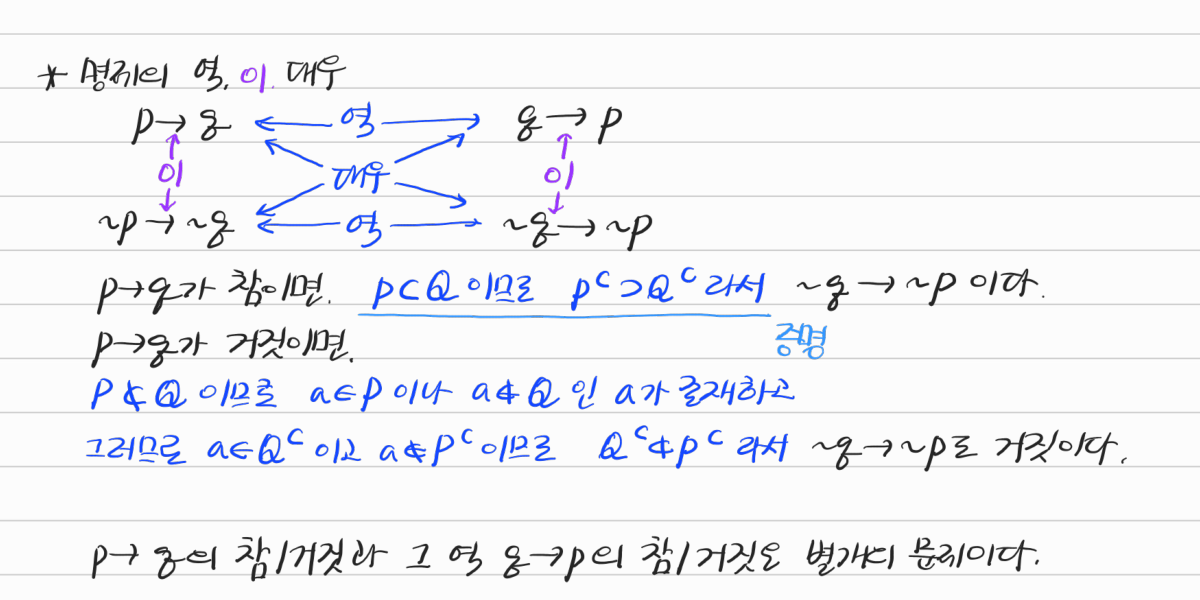 * 명제의 역, 이, 대우
p→q ← 역 → q→p
이 대우 이
~p→~q ← 역 → ~q→~p
p→q가 참이면, P⊂Q 이므로 P^C⊃Q^C 라서 ~q→~p 이다.
p→q가 거짓이면, 증명
P⊄Q 이므로 a∈P 이나 a∉Q 인 a가 존재하고
그러므로 a∈Q^C 이고 a∉P^C 이므로 Q^C⊄P^C 라서 ~q→~p도 거짓이다.
p→q의 참/거짓과 그 역 q→p의 참/거짓은 별개의 문제이다.